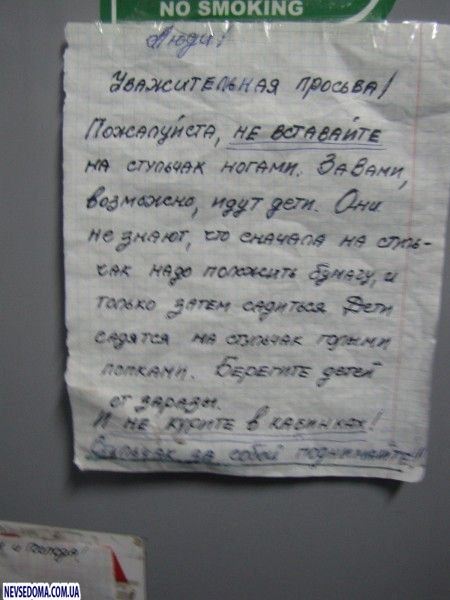 NO SMOKING
Люди!
Уважительная просьба!
Пожалуйста, не вставайте
на стульчак ногами. За Вами,
возможно, идут дети. Они
не знают, что сначала на стуль-
чак надо положить бумагу, и
только затем садиться. Дети
садятся на стульчак голыми
попками. Берегите детей
от заразы.
И не курите в кабинках!
Стульчак за собой поднимайте!!
NEVSEDOMA.COM.UA